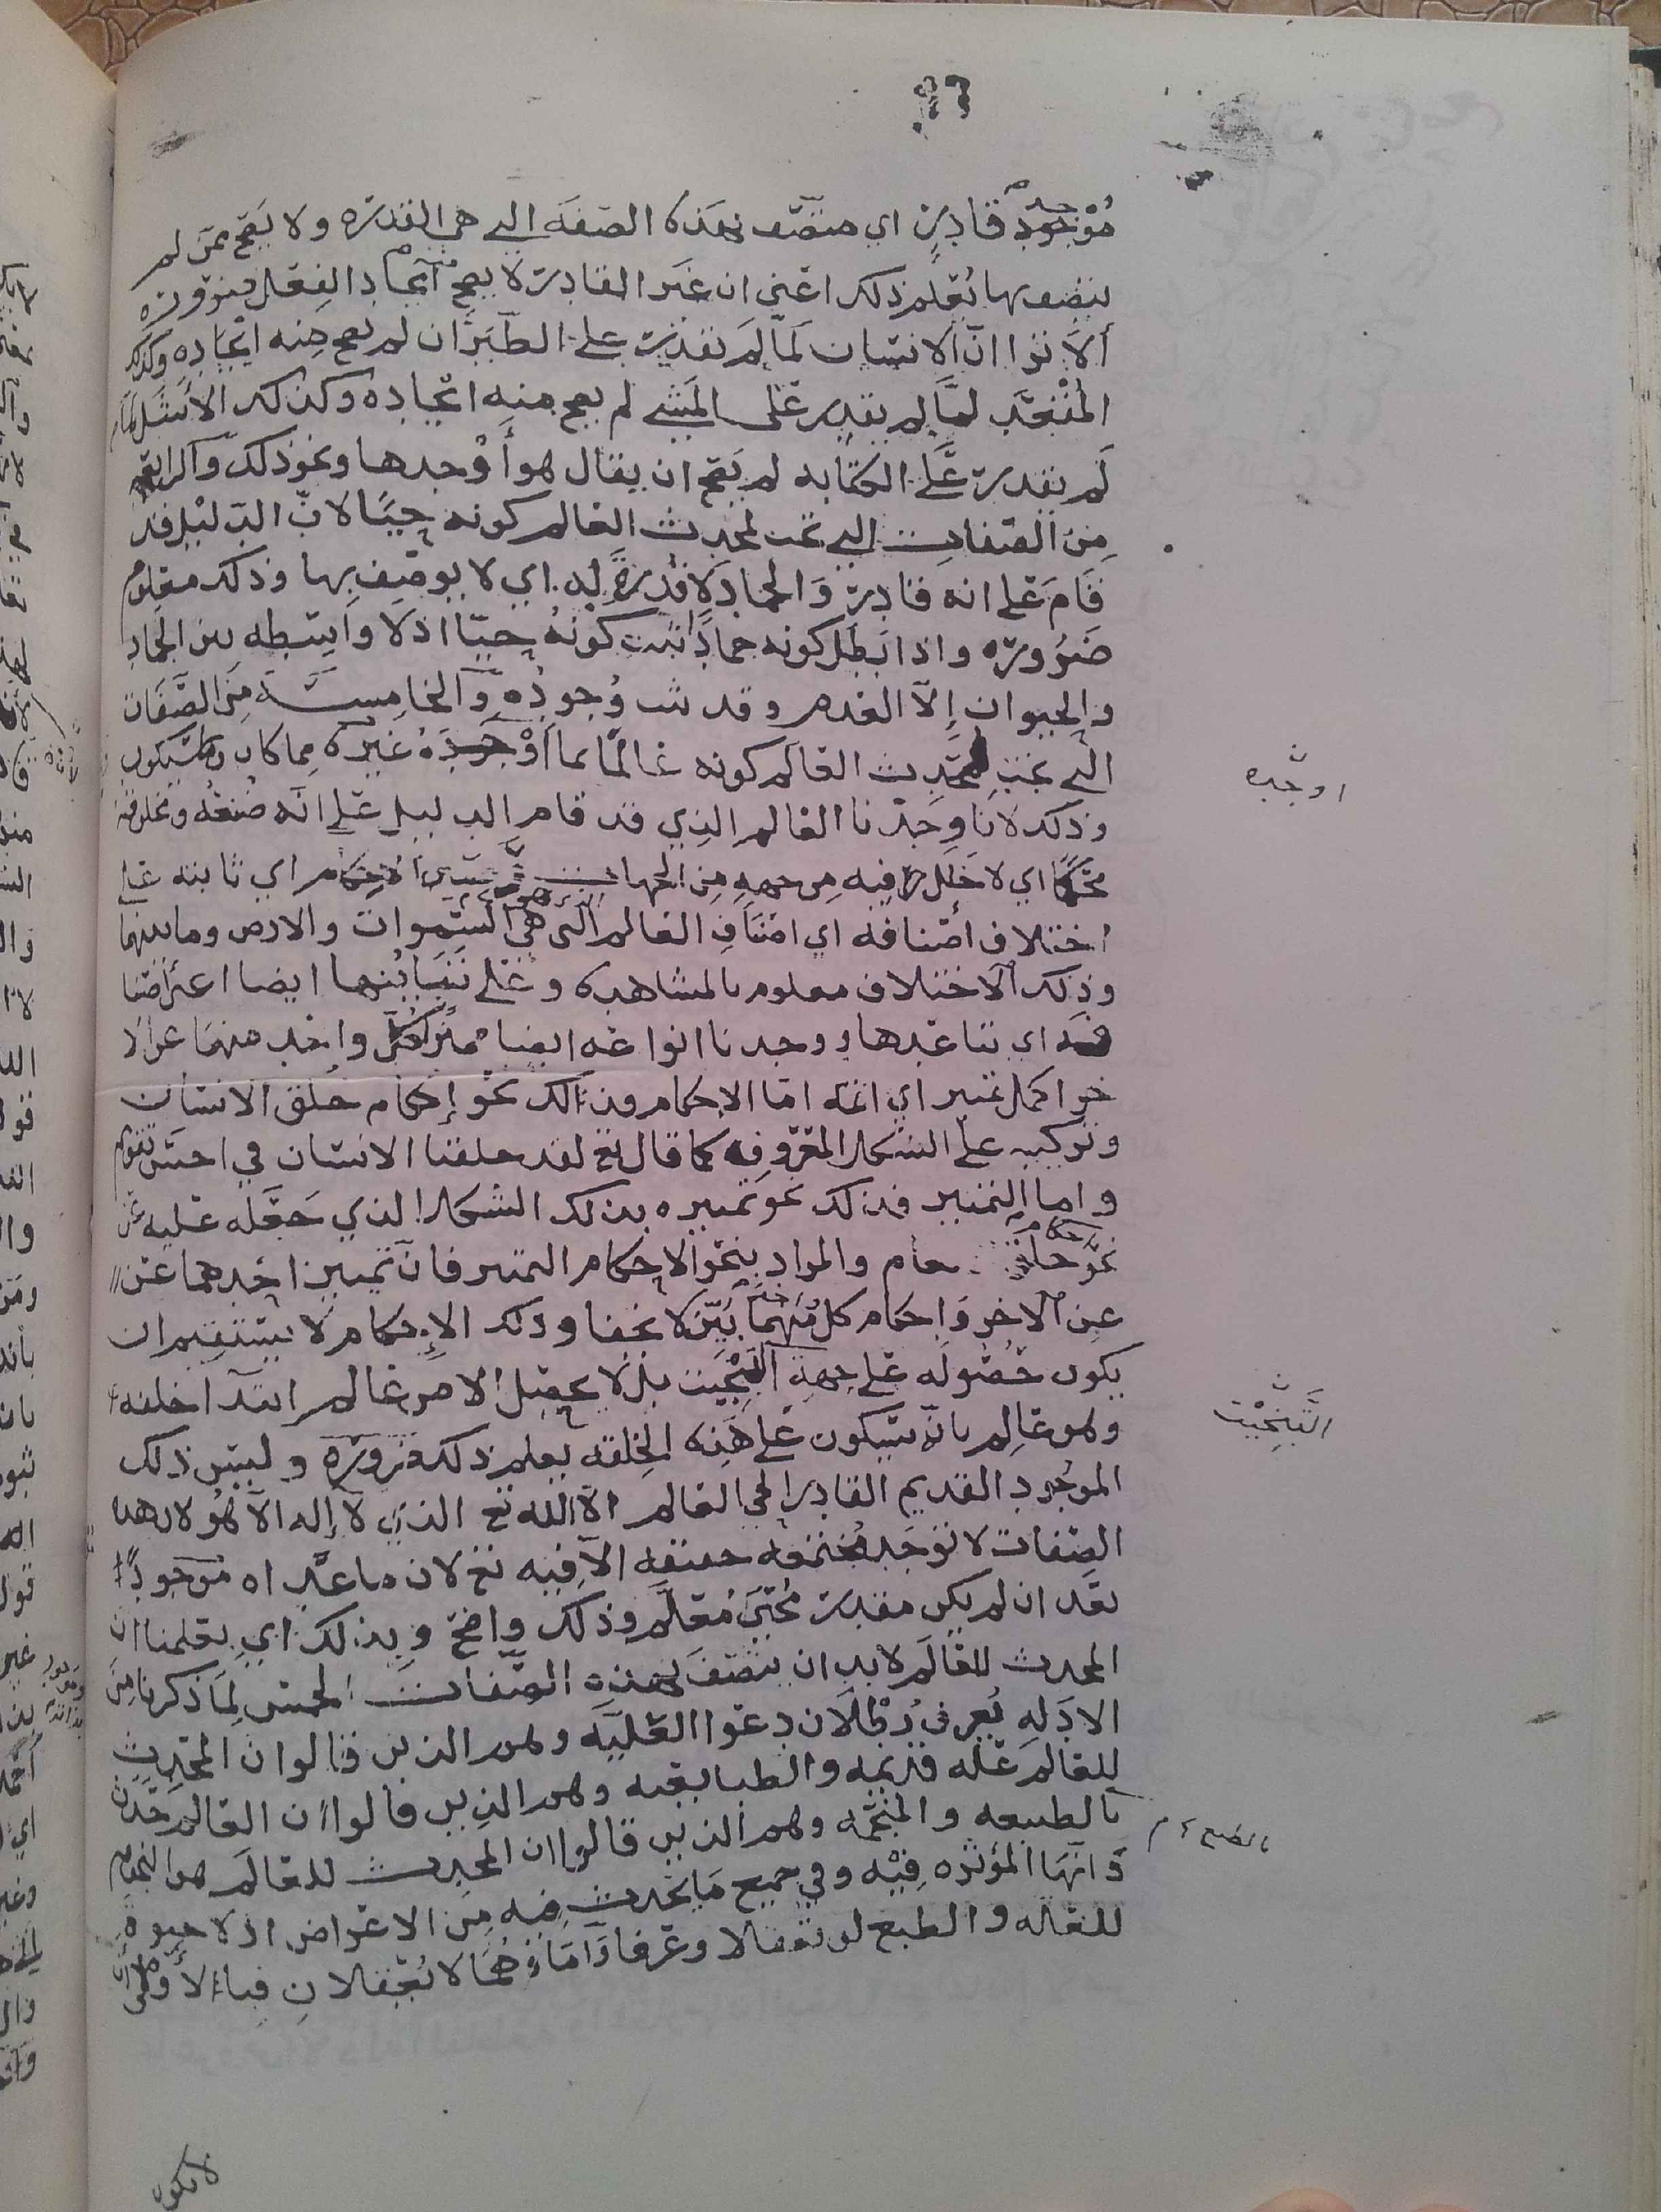 موجد قادر اي متصف بهذه الصفه التي هي القدره ولا يصح ممن لم
يتصف بها يعلم ذلك اعني ان غير القادر لا يصح ايجاد الفعل منه ضروره
ألا تروا انّ الانسان لمّا لم يقدر على الطيران لم يصح منه ايجاده وكذلك
المقعد لمّا لم يقدر على المشي لم يصح منه ايجاده وكذلك الأشل لما
لم يقدر على الكتابه لم يصح ان يقال هو أوجدها ونحو ذلك والرابعه
من الصفات التي تجب لمحدث العالم كونه حيّا لانّ الدليل قد
قام على انه قادر والجماد لا قدرة له اي لا يوصف بها وذلك معلوم
ضروره واذا بطل كونه جمادا ثبت كونه حيّا اذ لا واسطه بين الجماد
والحيوان إلاّ العدم وقد ثبت وجوده والخامسة من الصفات
التي تجب لمحدث العالم كونه عالمًا بما أوجده غيره مما كان وما سيكون
اوجده
وذلك لانا وجدنا العالم الذي قد قام الدليل على انه صنعه ومخلوقه
محكما اي لا خلل فيه من جهه من الجهات الاحكام اي ثابته على
اختلاف أصنافه اي اصناف العالم التي هي السموات والارض وما بينهما
وذلك الاختلاف معلوم بالمشاهده وعلى تباينها ايضا
اي تباعدها ووجدنا انواعه ايضا مميزا كل واحد منهما عن الا
خر اكمل تمييز اي اتمه امّا الاحكام فذلك نحو إحكام خلق الانسان
وتركيبه على الشكل المعروف كما قال تع لقد خلقنا الانسان في احسن تقويم
واما التمييز فذلك نحو تمييزه بذلك الشكل الذي جعله عليه عن
نحو والمراد بنحو الاحكام التمييز فانّ تمييز احدهما عن
عن الاخر واحكام كل منهما بيّن لا يخفا وذلك الإحكام لا يستقيم ان
يكون حصوله على جهة التبخيت بل لا يحصل الا من عالم ابتدا خلقه
التبخيت
وهو عالم بانّه سيكون على هذه الخلقه يعلم ذلك ضروره وليس ذلك
الموجود القديم القادر الحي العالم الاّ الله تع الذي لا إله الاّ هو لان هذه
الصفات لا توجد مجتمعه حقيقه الاّ فيه تع لان ما عداه موجود
بعد ان لم يكن مقدر محيى معلم وذلك واضح وبذلك اي بعلمنا ان
المحدث للعالم لا بد ان يتصف بهذه الصفات الخمس لما ذكرنا من
الادله يعرف بطلان دعوا العليّه وهم الذين قالوا ان المحدث
للعالم علّه قديمه والطبايعيه وهم الذين قالوا ان العالم حدث
بالطبيعه والمنجمه وهم الذين قالوا ان المحدث للعالم هو النجوم
بالطبع
وانها المؤثره فيه وفي جميع ما يحدث فيه من الاعراض اذ لا حيوة
للعله والطبع لو تعقلا وعرفا وامّا وهما لا يعقلان فبالأولى
لا يكون